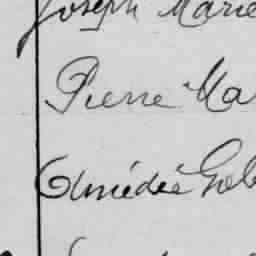 Joseph Marie
Pierre Ma
Amédée Gob